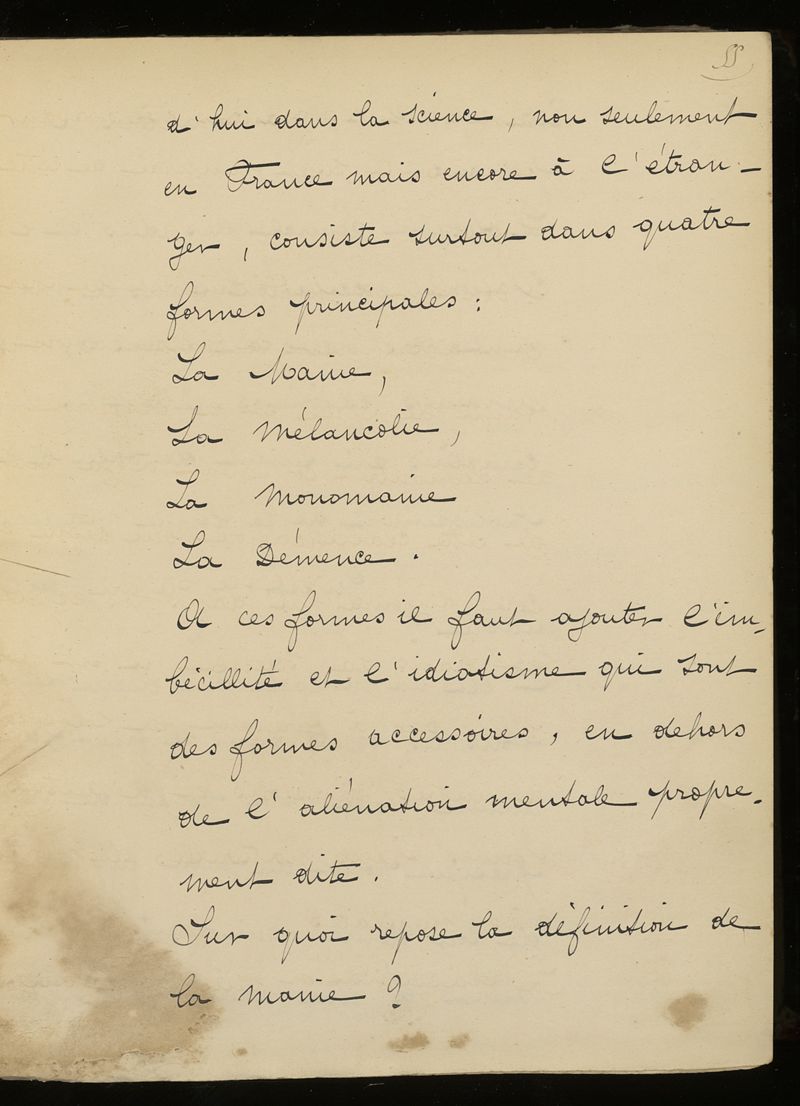 55
d'hui dans la science, non seulement
en France mais encore à l'étran-
ger, consiste surtout dans quatre
formes principales :
La Manie,
La Mélancolie,
La Monomanie
La Démence.
A ces formes il faut ajouter l'im-
bécillité et l'idiotisme qui sont
des formes accessoires, en dehors
de l'aliénation mentale propre-
ment dite.
Sur quoi repose la définition de
la manie ?